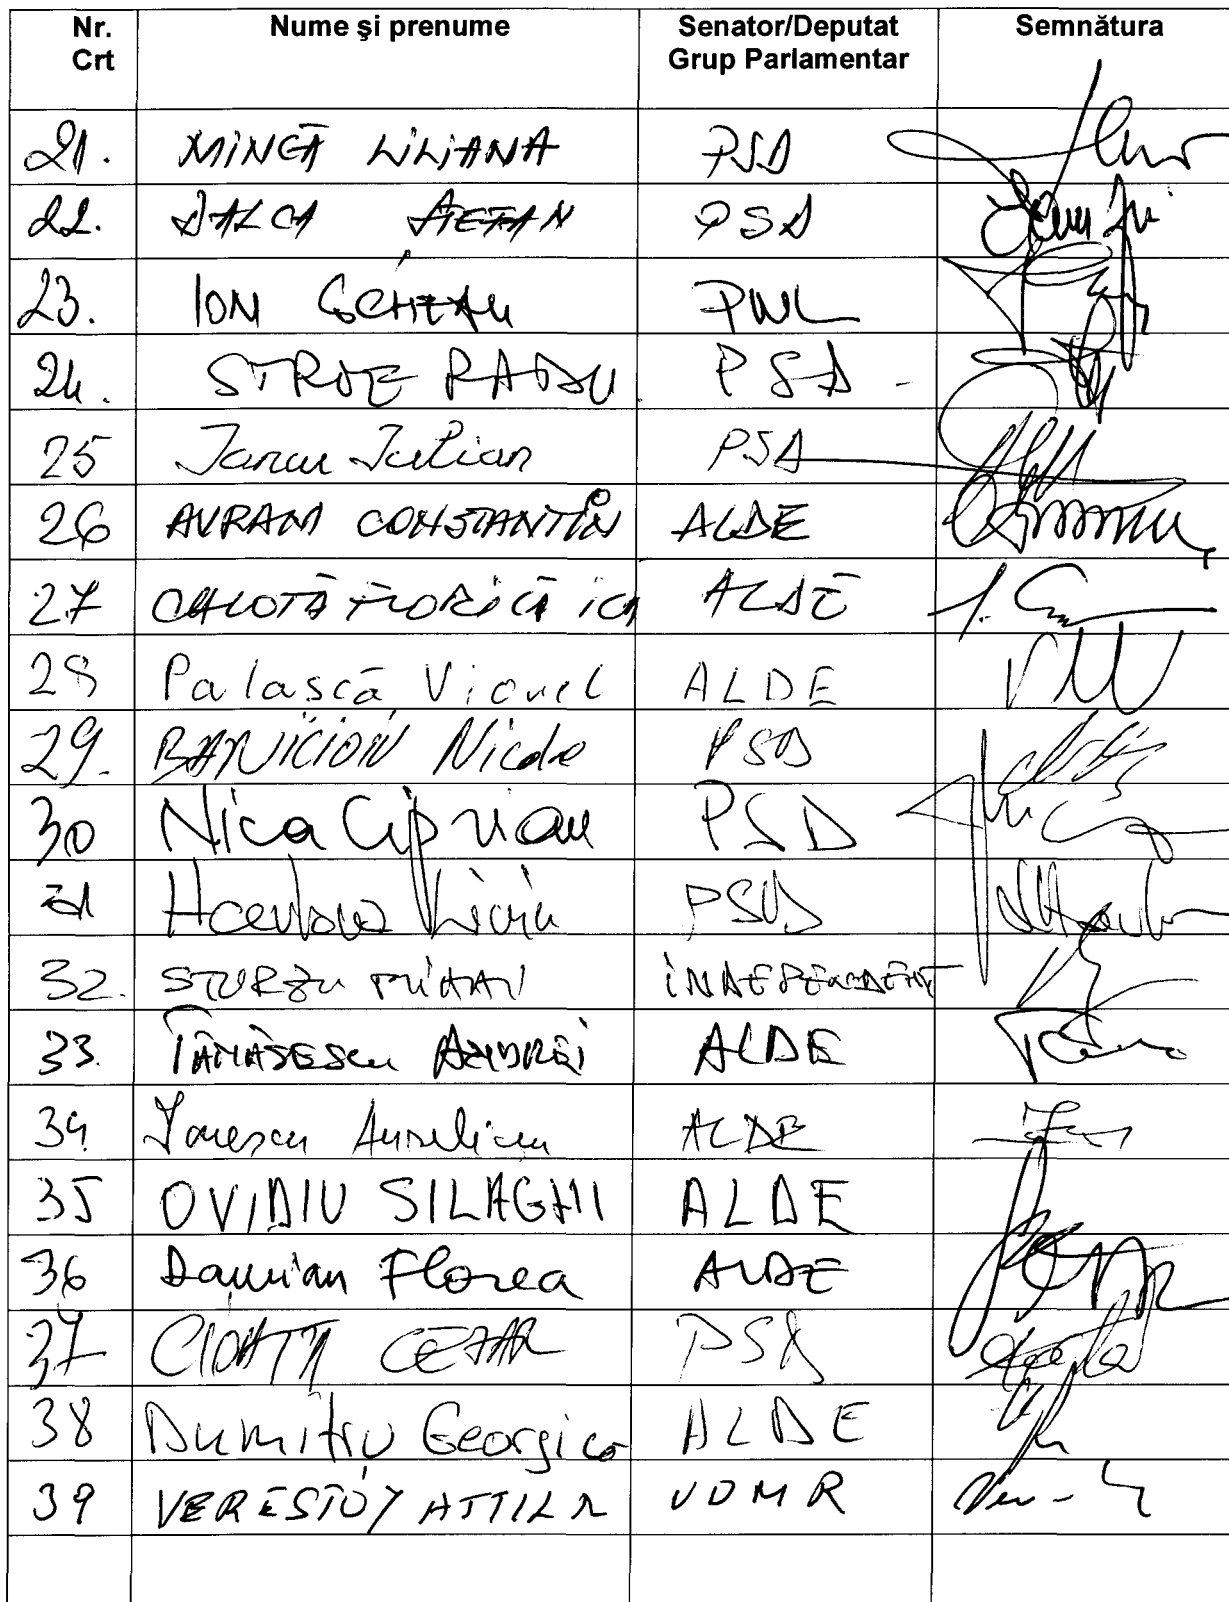 Nr. Crt Nume şi prenume Senator/Deputat Grup Parlamentar Semnătura
21. MINCĂ LILIANA PSD
22. DALCA PSD
23. ION PNL
24. STROE RADU PSD -
25 Iancu Iulian PSD
26 AVRAM CONSTANTIN ALDE
27 CALOTĂ FLORICĂ ICĂ ALDE
28 Palașcă Viorel ALDE
29. BĂNICIOIU Nicolae PSD
30 Nica Ciprian PSD
31 PSD
32. STURZU MIHAI INDEPENDENT
33. TĂNĂSESCU ANDREI ALDE
34 Ionescu Aurelian ALDE
35 OVIDIU SILAGHI ALDE
36 Damian Florea ALDE
37 CIOATĂ CEZAR PSD
38 Dumitru Georgică ALDE
39 VERESTOY ATTILA UDMR